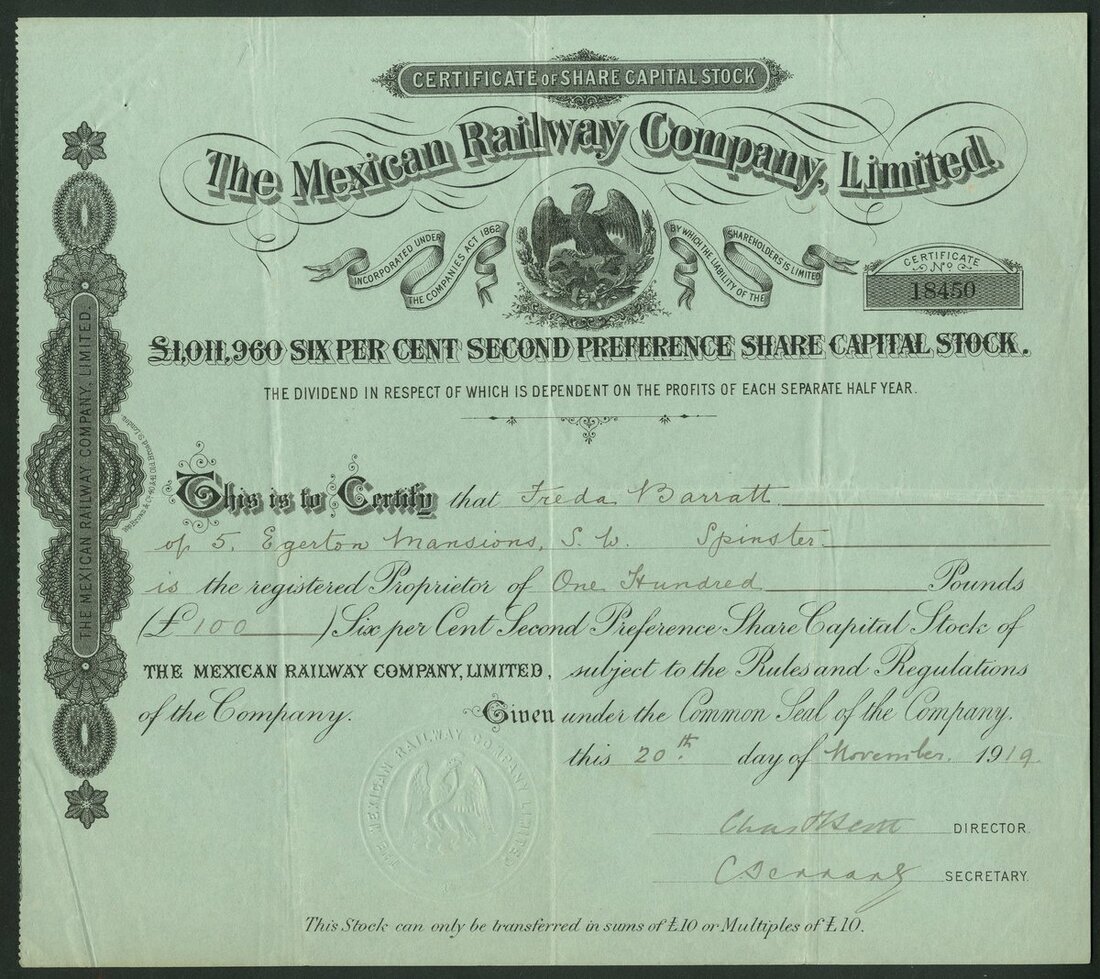 CERTIFICATE OF SHARE CAPITAL STOCK
The Mexican Railway Company, Limited.
INCORPORATED UNDER THE COMPANIES ACT 1862
BY WHICH THE LIABILITY OF THE SHAREHOLDERS IS LIMITED
CERTIFICATE
No
18450
£1,011,960 SIX PER CENT SECOND PREFERENCE SHARE CAPITAL STOCK.
THE DIVIDEND IN RESPECT OF WHICH IS DEPENDENT ON THE PROFITS OF EACH SEPARATE HALF YEAR.
THE MEXICAN RAILWAY COMPANY, LIMITED.
This is to Certify that Freda Barratt
of 5, Egerton Mansions, S.W. Spinster
is the registered Proprietor of One Hundred Pounds
(£100) Six per Cent Second Preference Share Capital Stock of
THE MEXICAN RAILWAY COMPANY, LIMITED, subject to the Rules and Regulations
of the Company. Given under the Common Seal of the Company,
this 20th day of November, 1919
THE MEXICAN RAILWAY COMPANY LIMITED
DIRECTOR
SECRETARY.
This Stock can only be transferred in sums of £10 or Multiples of £10.